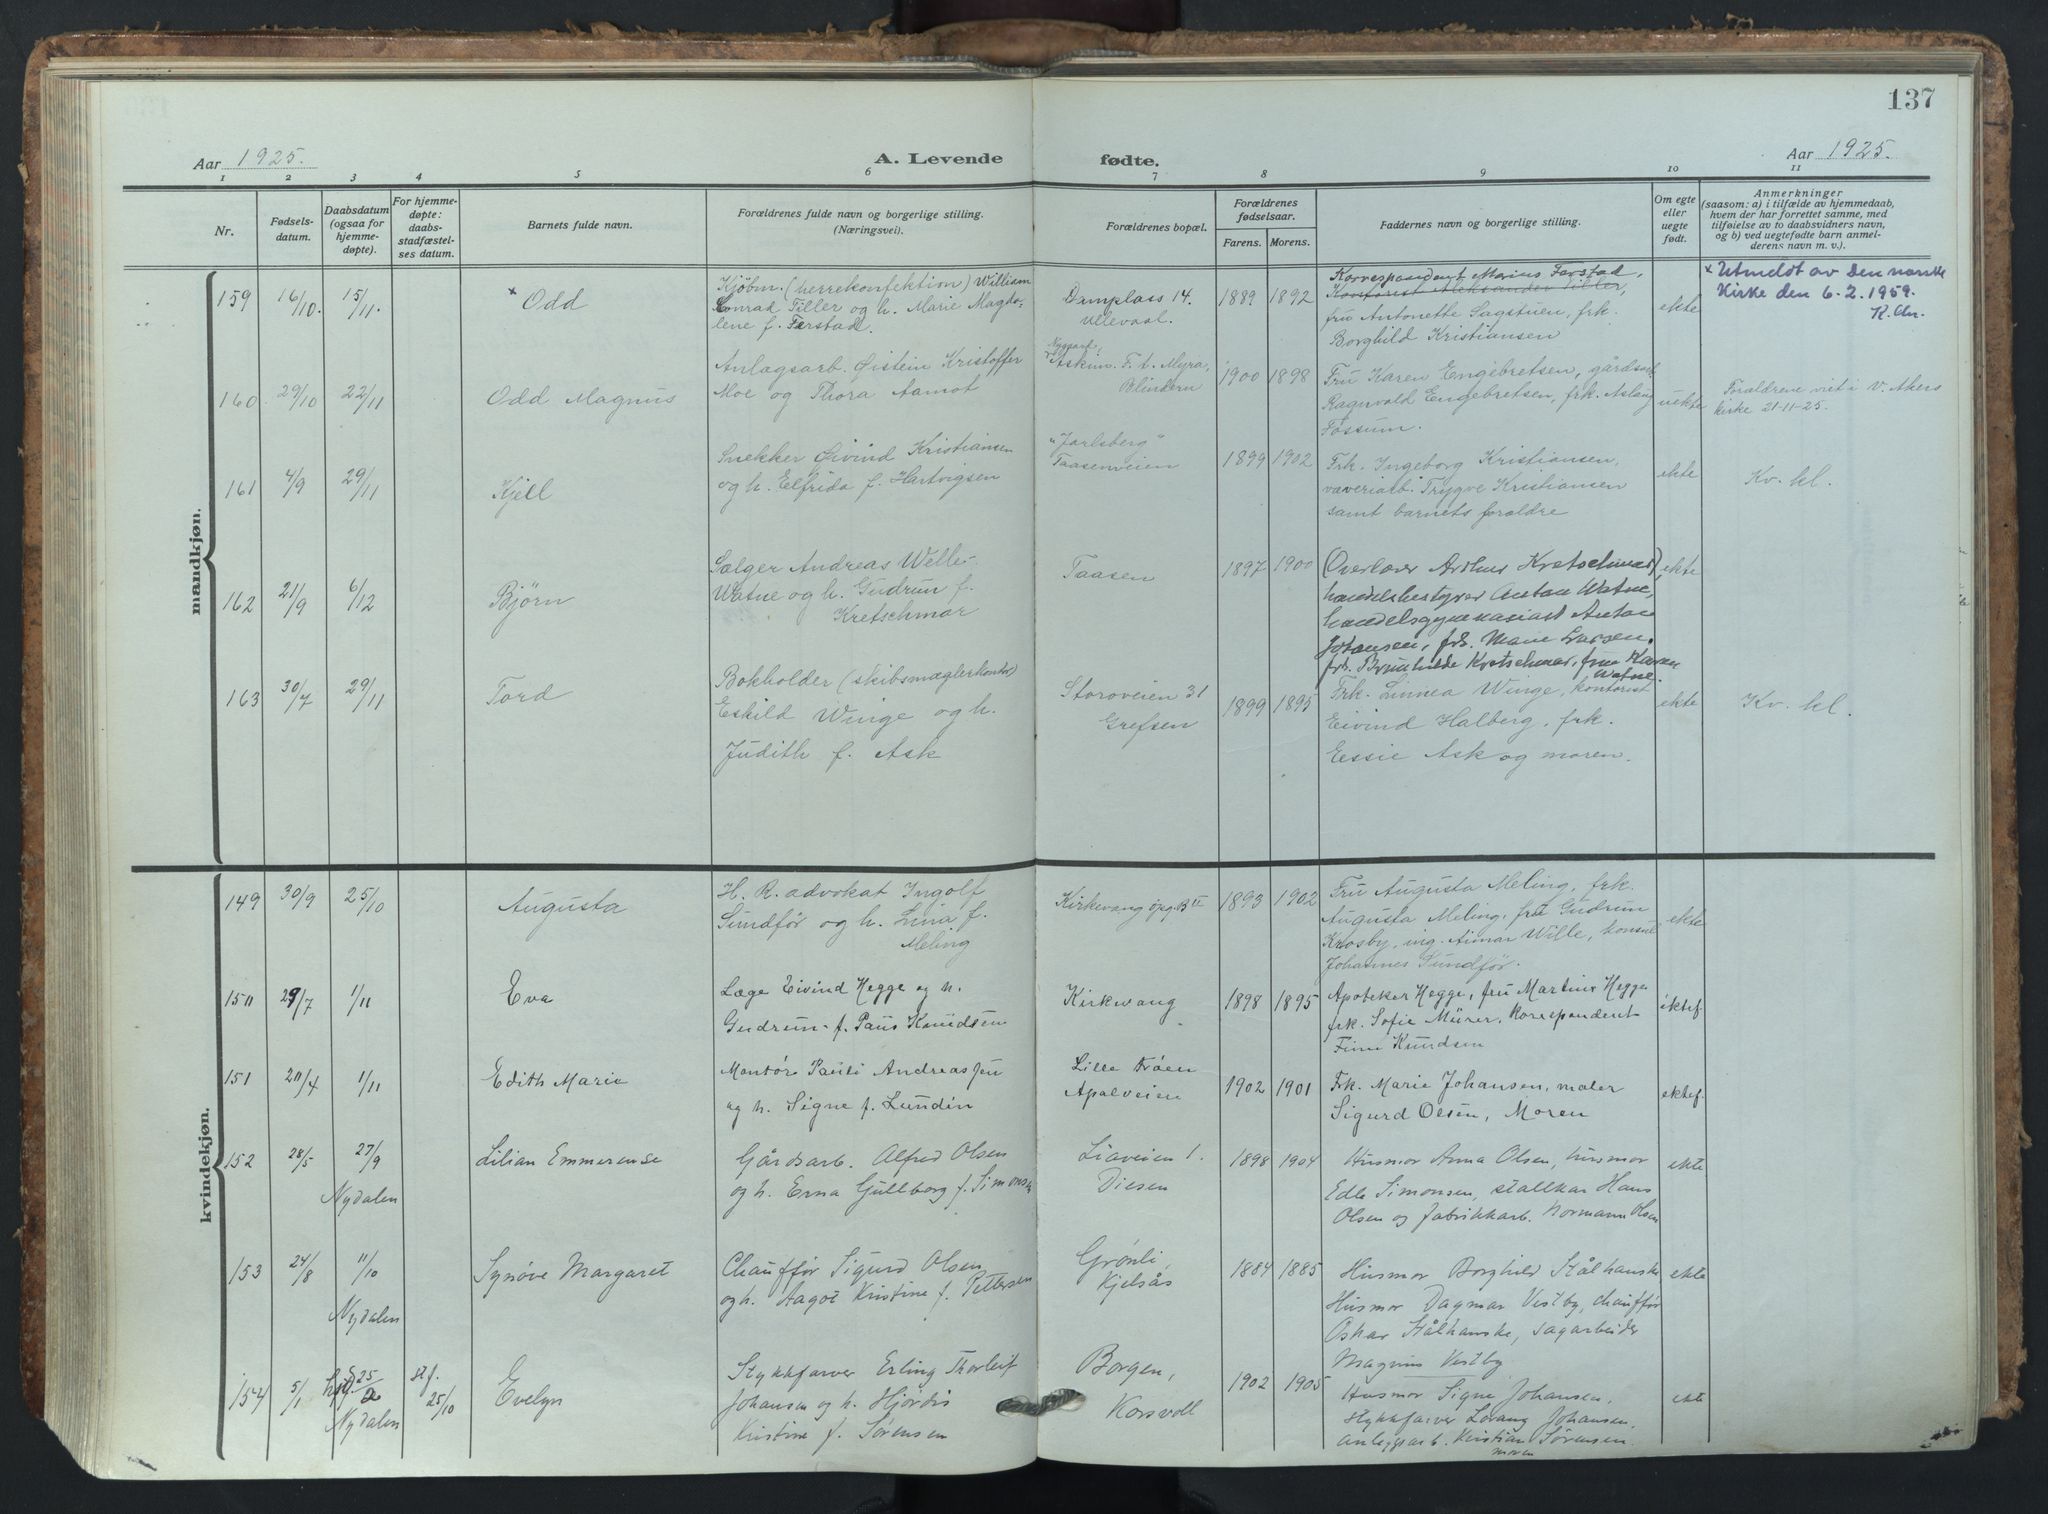 137
Aar 1925.
A. Levende fødte.
Aar 1925.
1 2 3 4 5 6 7 8 9 10 11
Nr.
Fødsels-
datum.
Daabsdatum
(ogsaa for
hjemme-
døpte).
For hjemme-
døpte:
daabs-
stadfæstel-
ses datum.
Barnets fulde navn.
Forældrenes fulde navn og borgerlige stilling.
(Næringsvei).
Forældrenes bopæl.
Forældrenes
fødselsaar.
Farens. Morens.
Faddernes navn og borgerlige stilling.
Om egte
eller
uegte
født.
Anmerkninger
(saasom: a) i tilfælde av hjemmedaab,
hvem der har forrettet samme, med
tilføielse av to daabsvidners navn,
og b) ved uegtefødte barn anmel-
derens navn m. v.).
mandkjøn.
159
16/10.
15/11.
× Odd
Kjöbm. (herrekonfektion) William
Conrad Tiller og h. Marie Magda-
lene f. Farstad.
Damplass 14.
Ullevaal.
1889 1892
Korrespondent Marius Farstad,
Kontorist Aleksander Tiller,
fru Antonette Sagstuen, frk.
Borghild Kristiansen
ekte
× Utmeldt av Den norske
Kirke den 6.2.1959.
160.
29/10
22/11
Odd Magnus
Anlægsarb. Øistein Kristoffer
Moe og Thora Aamot
Askim. F. t. Myra,
Blindern
1900 1898
Fru Karen Engebretsen, gårdsarb.
Ragnvald Engebretsen, frk. Aslaug
Fossum.
uekte
Forældrene viet i V. Akers
kirke 21-11-25.
161
4/9
29/11
Kjell
Snekker Øivind Kristiansen
og h. Elfrida f. Hartvigsen
"Jarlsberg"
Taasenveien
1899 1902
Frk. Ingeborg Kristiansen,
væveriarb. Trygve Kristiansen
samt barnets forældre
ekte
Kv. kl.
162
21/9
6/12
Bjørn
Sælger Andreas Welle-
Watne og h. Gudrun f.
Kretschmar
Taasen
1897 1900
(Overlærer Arthur Kretschmar),
handelsbestyrer Anton Watne,
handelsgymnasiast Anton
Johansen, frk. Marie Larsen,
frk. Brunhilde Kretschmar, frue Karen
Watne.
ekte
163
30/7
29/11
Tord
Bokholder (skibsmæglerkontor)
Eskild Winge og h.
Judith f. Ask
Storoveien 31
Grefsen
1899 1895
Frk. Linnea Winge, kontorist
Eivind Halberg, frk.
Essie Ask og moren.
ekte
Kv. kl.
kvindekjøn.
149
30/9
25/10
Augusta
H. R. advokat Ingolf
Sundför og h. Lina f.
Meling
Kirkevang opg. B II
1893 1902
Fru Augusta Meling, frk.
Augusta Meling, fru Gudrun
Krosby, ing. Aimar Wille, konsul
Johannes Sundför.
ekte
150
29/7
1/11
Eva
Læge Eivind Hegge og h.
Gudrun f. Paus Knudsen
Kirkevang
1898 1895
Apoteker Hegge, fru Martine Hegge
frk. Sofie Mürer, Korrespondent
Finn Knudsen
ektef.
151
20/4
1/11
Edith Marie
Montör Pauli Andreassen
og h. Signe f. Lundin
Lille Fröen
Apalveien
1902 1901
Frk. Marie Johansen, maler
Sigurd Olsen, Moren
ektef.
152
28/5
27/9
Nydalen
Lilian Emmerense
Gårdsarb. Alfred Olsen
og h. Erna Gullborg f. Simonsen
Liaveien 1.
Disen
1898 1904
Husmor Anna Olsen, husmor
Edle Simonsen, stallkar Hans
Olsen og fabrikkarb. Normann Olsen
ekte
153
24/8
11/10
Nydalen
Synöve Margaret
Chauffør Sigurd Olsen
og h. Aagot Kristine f. Pettersen
Grönli,
Kjelsås
1884 1885
Husmor Borghild Stålhanske
Husmor Dagmar Vestby, chauffør
Oskar Stålhanske, sagarbeider
Magnus Vestby
ekte
154
5/1
25/2
Nydalen
stf.
25/10
Evelyn
Stykkfarver Erling Thorleif
Johansen og h. Hjördis
Kristine f. Sørensen
Borgen,
Korsvoll
1902 1905
Husmor Signe Johansen,
stykkfarver Lorang Johansen,
anleggsarb. Kristian Sörensen.
moren
ekte